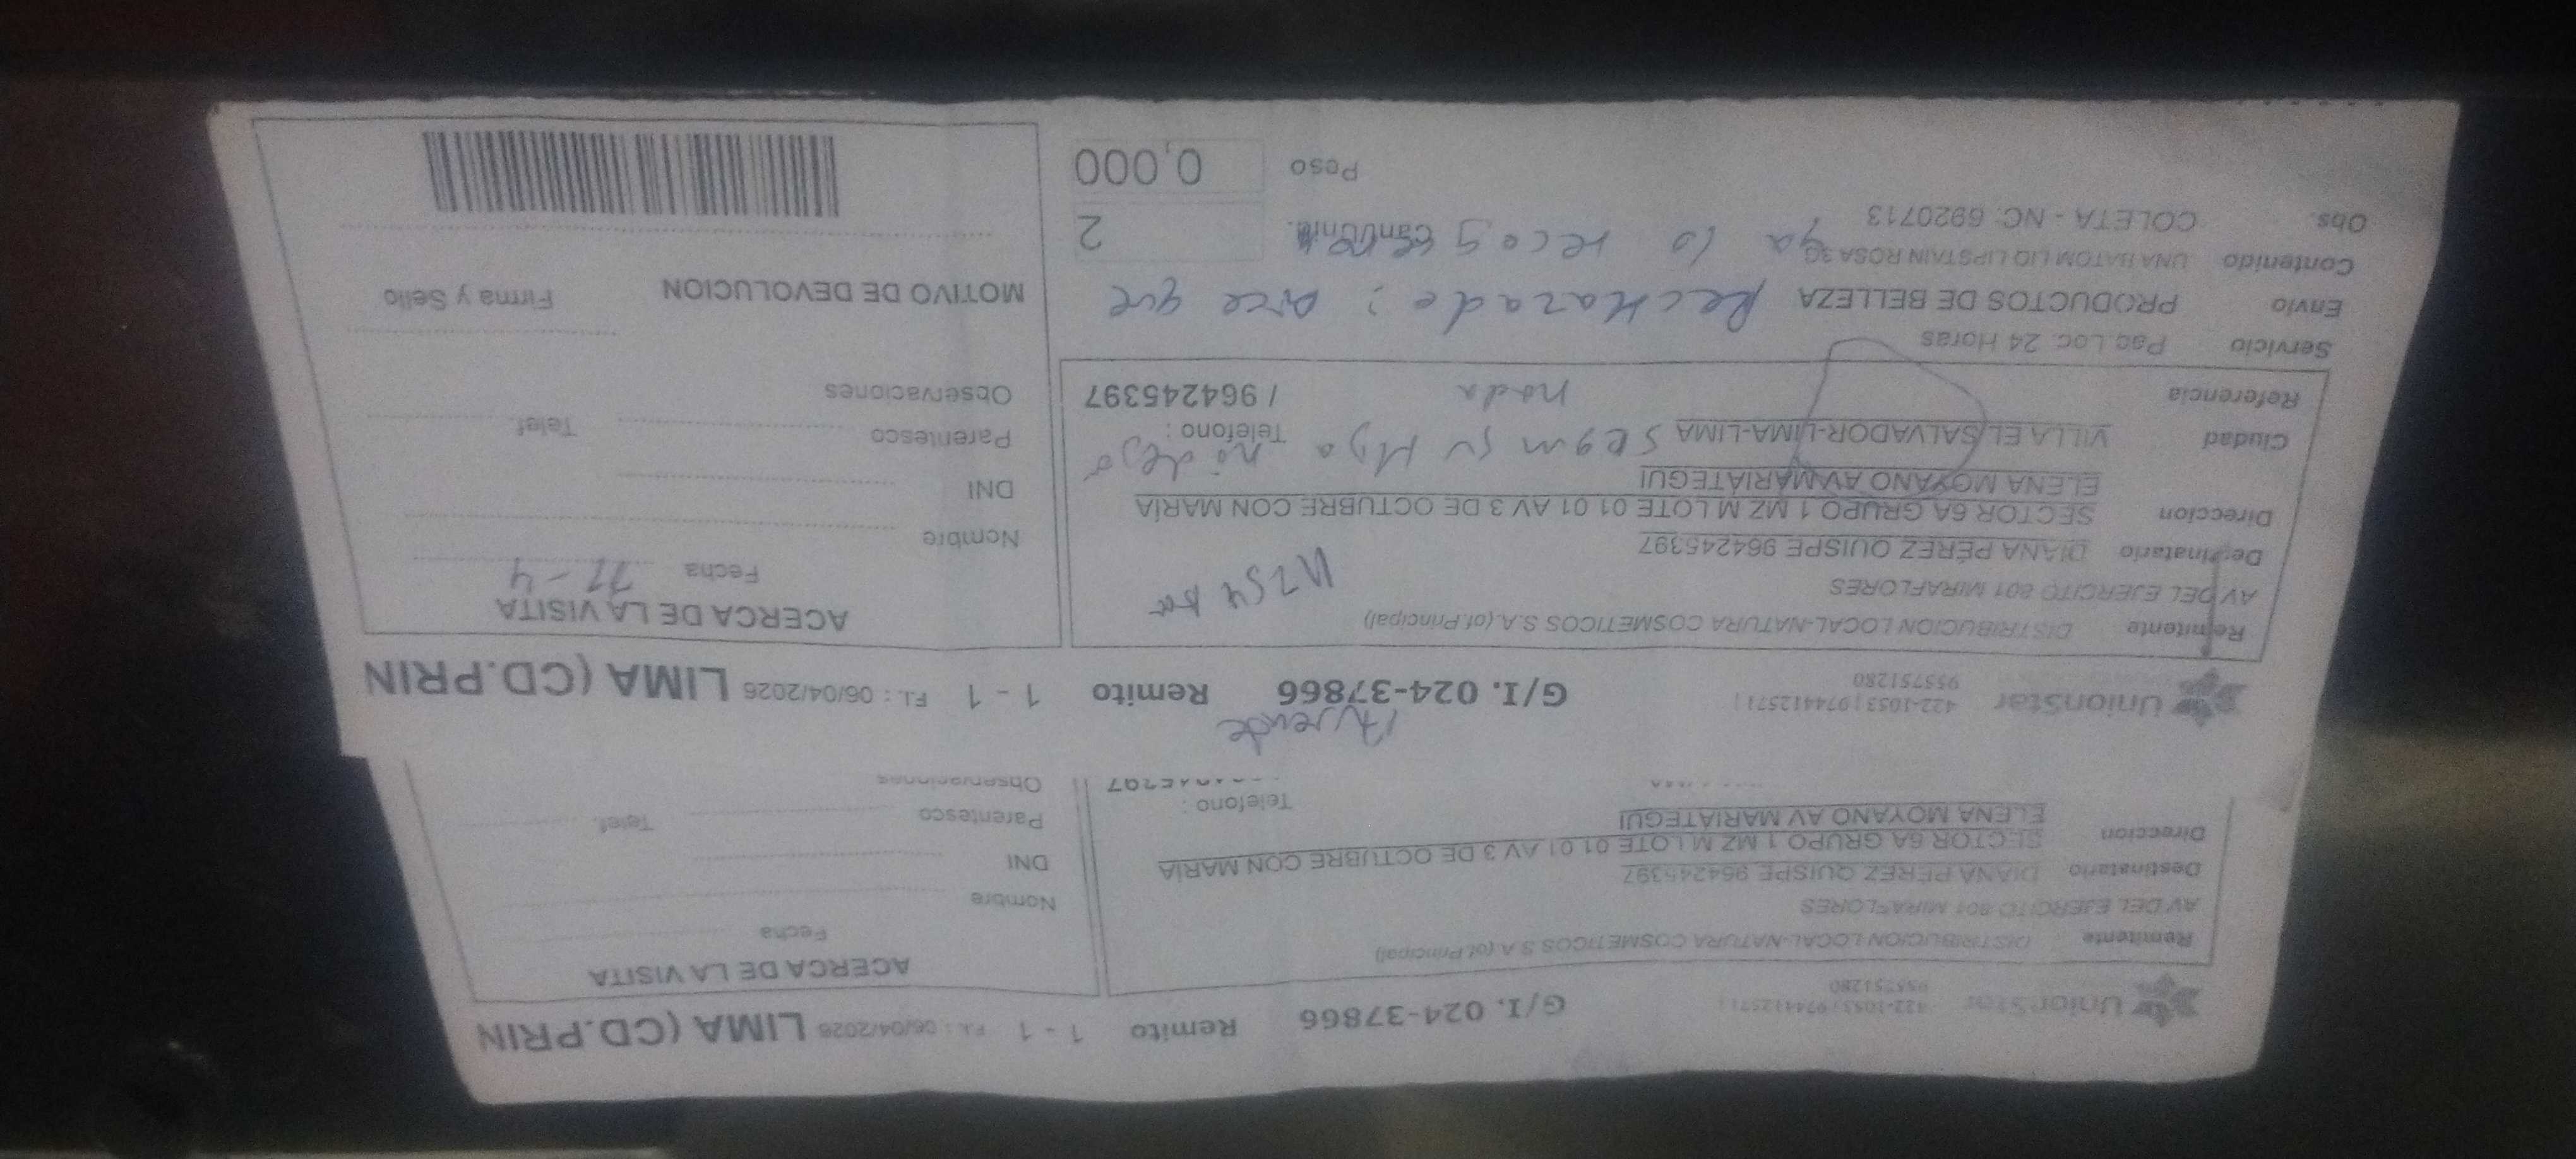 UnionStar
422-1053 | 974412571 |
955751280
G/I. 024-37866 Remito 1 - 1 F.I. : 06/04/2026 LIMA (CD.PRIN
Remitente DISTRIBUCION LOCAL-NATURA COSMETICOS S.A (of.Principal)
AV DEL EJERCITO 801 MIRAFLORES
Destinatario DIANA PÉREZ QUISPE 964245397
Direccion SECTOR 6A GRUPO 1 MZ M LOTE 01 01 AV 3 DE OCTUBRE CON MARÍA
ELENA MOYANO AV MARIATEGUI
Telefono :
ACERCA DE LA VISITA
Fecha
Nombre
DNI
Parentesco Telef.
Observaciones
Ausente
UnionStar
422-1053 | 974412571 |
955751280
G/I. 024-37866 Remito 1 - 1 F.I. : 06/04/2026 LIMA (CD.PRIN
Remitente DISTRIBUCION LOCAL-NATURA COSMETICOS S.A (of.Principal)
AV DEL EJERCITO 801 MIRAFLORES
Destinatario DIANA PÉREZ QUISPE 964245397
Direccion SECTOR 6A GRUPO 1 MZ M LOTE 01 01 AV 3 DE OCTUBRE CON MARÍA
ELENA MOYANO AV MARIATEGUI
Ciudad VILLA EL SALVADOR-LIMA-LIMA Telefono :
segun su Hija no dejó
nada
Referencia / 964245397
Servicio Paq Loc. 24 Horas
Envio PRODUCTOS DE BELLEZA
Rechazado: Dice que
Contenido UNA BATOM LIQ LIPSTAIN ROSA 3G
ya lo
Obs. COLETA - NC: 6920713
Cant/Unid. 2
Peso 0,000
ACERCA DE LA VISITA
Fecha 11-4
Nombre
DNI
Parentesco Telef.
Observaciones
MOTIVO DE DEVOLUCION Firma y Sello